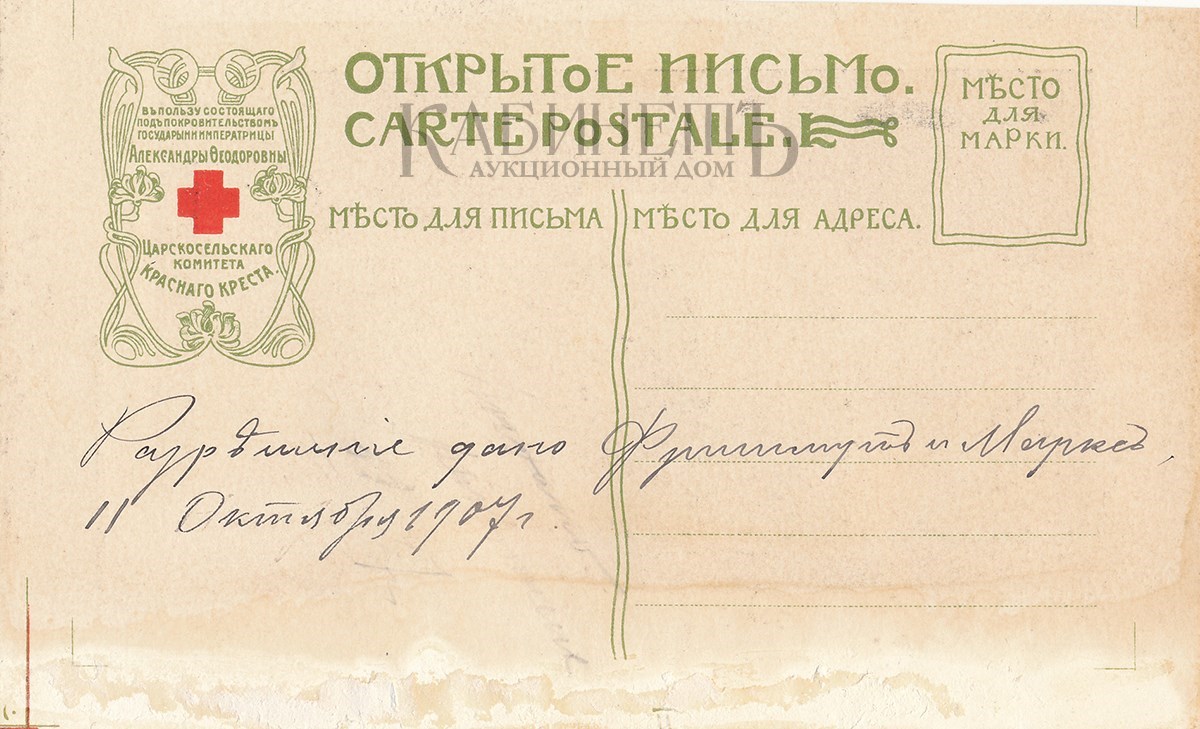 ОТКРЫТОЕ ПИСЬМО.
CARTE POSTALE.
КАБИНЕТЪ
АУКЦИОННЫЙ ДОМ
ВЪ ПОЛЬЗУ СОСТОЯЩАГО
ПОДЪ ПОКРОВИТЕЛЬСТВОМЪ
ГОСУДАРЫНИ ИМПЕРАТРИЦЫ
АЛЕКСАНДРЫ ѲЕОДОРОВНЫ
ЦАРСКОСЕЛЬСКАГО
КОМИТЕТА
КРАСНАГО КРЕСТА.
МѢСТО
ДЛЯ
МАРКИ.
МѢСТО ДЛЯ ПИСЬМА
МѢСТО ДЛЯ АДРЕСА.
Разрѣшеніе дано и Марксъ,
11 Октября 1907 г.